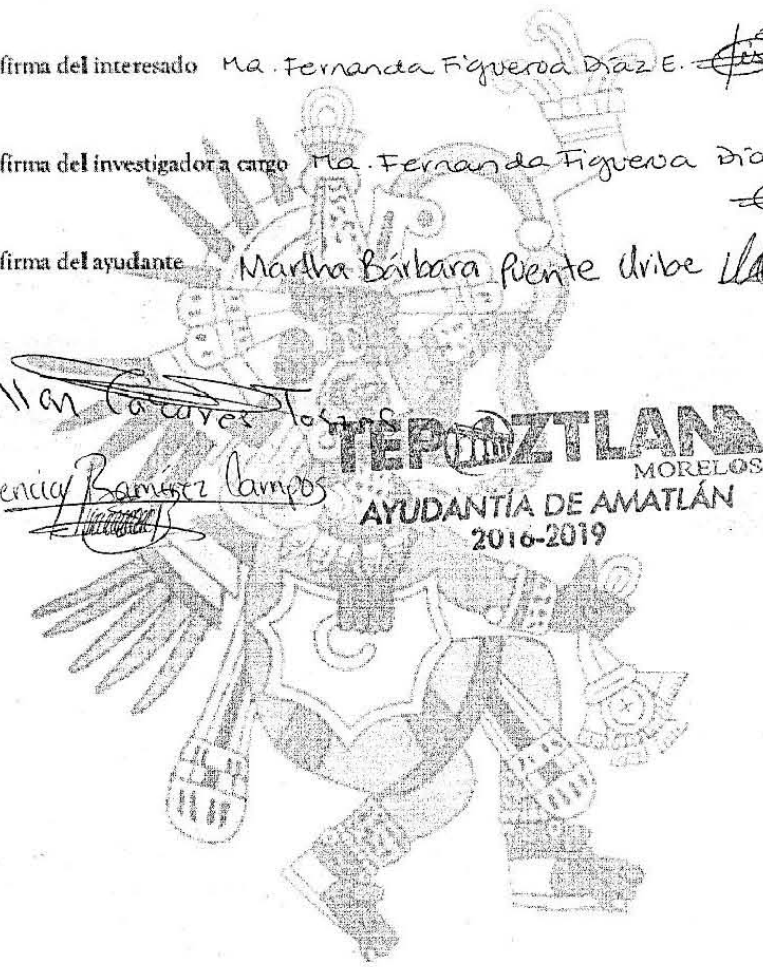 firma del interesado Ma. Fernanda Figueroa Díaz E.
firma del investigador a cargo Ma. Fernanda Figueroa
firma del ayudante Martha Bárbara Puente Uribe
TEPOZTLAN
MORELOS
Ramírez Campos
AYUDANTÍA DE AMATLÁN
2016-2019